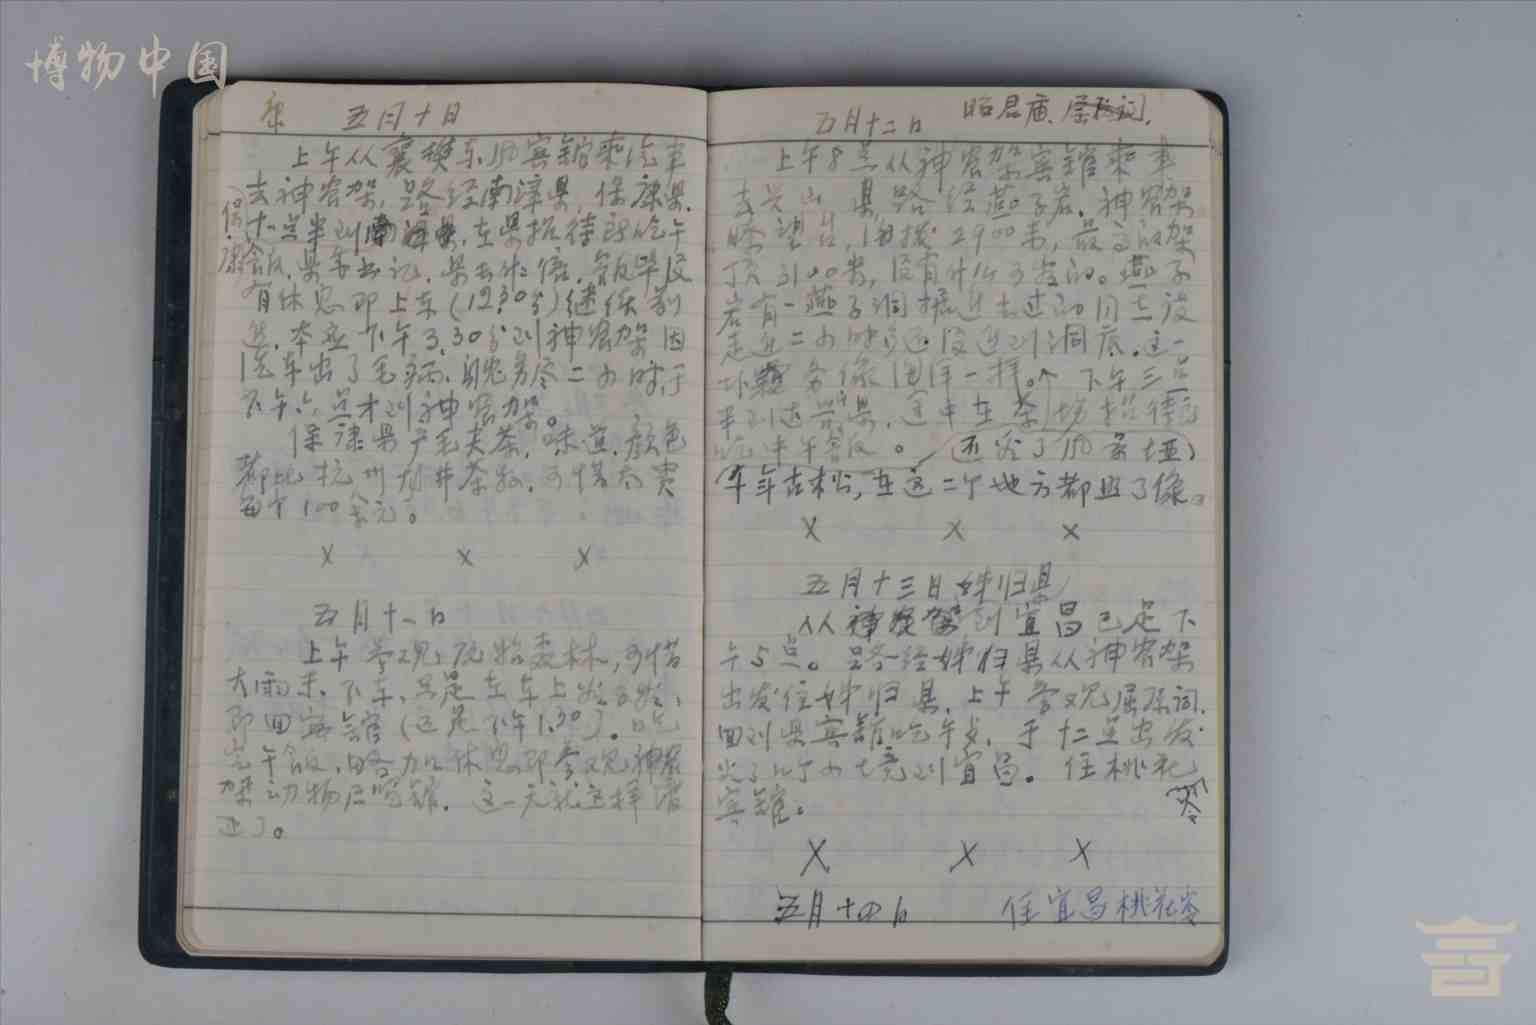 博物中国
五月十日
上午从襄樊东风宾馆乘汽车
去神农架，路经南漳县，保康县.
保康
十一点半到南漳县，在县招待所吃午
饭，县委书记，县长作陪，饭毕没
有休息即上车（12.30分）继续前
进，本应下午3.30分到神农架因
汽车出了毛病，耽务尽二小时，于
下午六点才到神农架。
保康县产毛尖茶，味道，颜色
都比杭州龙井茶好，可惜太贵
每斤100余元。
× × ×
五月十一日
上午参观原始森林，可惜
大雨未下车，只是在车上
即回宾馆（这是下午1.30）。吃
完午饭，略加休息即参观神农
架动物展览馆，这一天就这样渡
过了。
五月十二日 昭君庙、屈原祠，
上午8点从神农架宾馆乘车
去兴山县路经燕子岩，神农架
瞭望台，海拔2900米，最高的架
顶3100米，没有什么可 的。燕子
岩有一燕子洞据进去过的同志说
走近二小时还没进到洞底。这一
像围 一样。下午三点
半到达兴山县，途中在茶场招待所
吃 午饭。（还 了风景垭）
千年古松，在这二个地方都照了像。
× × ×
五月十三日 姊归县
从神农架到宜昌已是下
午5点。路经姊归县从神农架
出发住姊归县，上午参观屈原祠，
回到县宾馆吃午 ，于十二点出发
走了几个小时 到宜昌。住桃花
岭
宾馆。
× × ×
五月十四日 住宜昌桃花岭